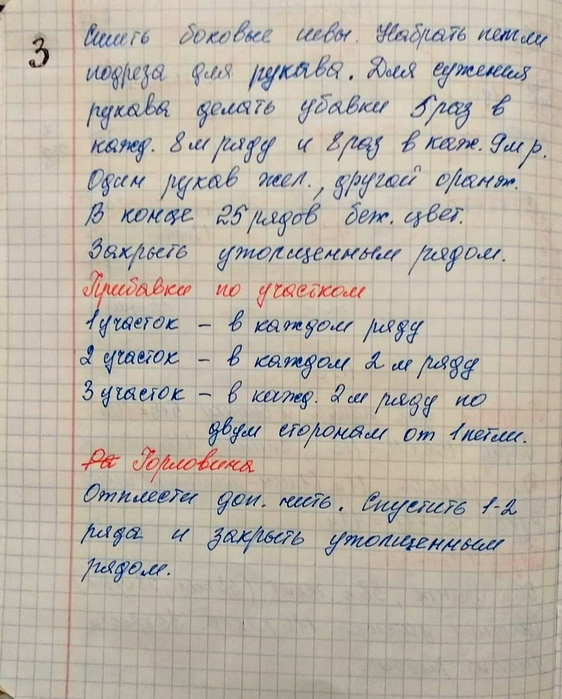 3
Сшить боковые швы. Набрать петли
подреза для рукава. Для сужения
рукава делать убавки 5 раз в
кажд. 8м ряду и 8 раз в каж. 9м р.
Один рукав жел., другой оранж.
В конце 25 рядов беж. цвет.
Закрыть утолщенным рядом.
Прибавки по участком
1 участок – в каждом ряду
2 участок – в каждом 2м ряду
3 участок – в кажд. 2м ряду по
двум сторонам от 1 петли.
Горловина
Отплести доп. нить. Спустить 1-2
ряда и закрыть утолщенным
рядом.